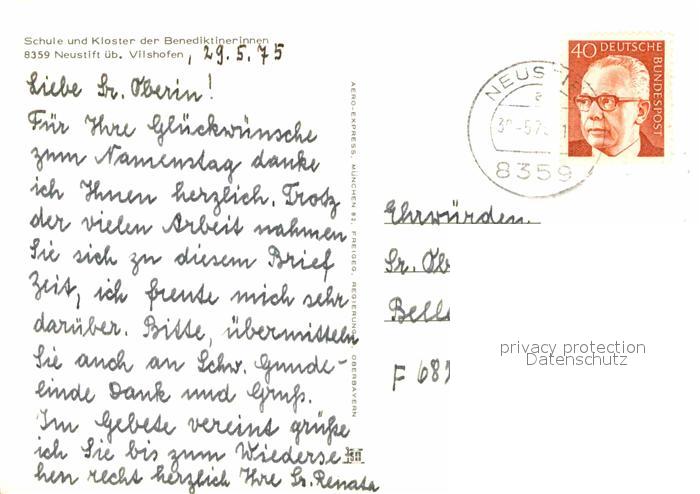 Schule und Kloster der Benediktinerinnen
8359 Neustift üb. Vilshofen, 29.5.75
Liebe Sr. Oberin!
Für Ihre Glückwünsche
zum Namenstag danke
ich Ihnen herzlich. Trotz
der vielen Arbeit nahmen
Sie sich zu diesem Brief
Zeit, ich freute mich sehr
darüber. Bitte, übermitteln
Sie auch an Schw. Gunde-
linde Dank und Gruß.
Im Gebete vereint grüße
ich Sie bis zum Wiederse
hen recht herzlich Ihre Sr. Renata
AERO-EXPRESS, MÜNCHEN 82, FREIGEG. REGIERUNG OBERBAYERN
40 DEUTSCHE
BUNDESPOST
NEUSTIFT
a
30.-5.75
8359
Ehrwürden
Sr. Ob
Bell
F 68
privacy protection
Datenschutz